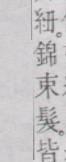 紐。錦束髮。皆